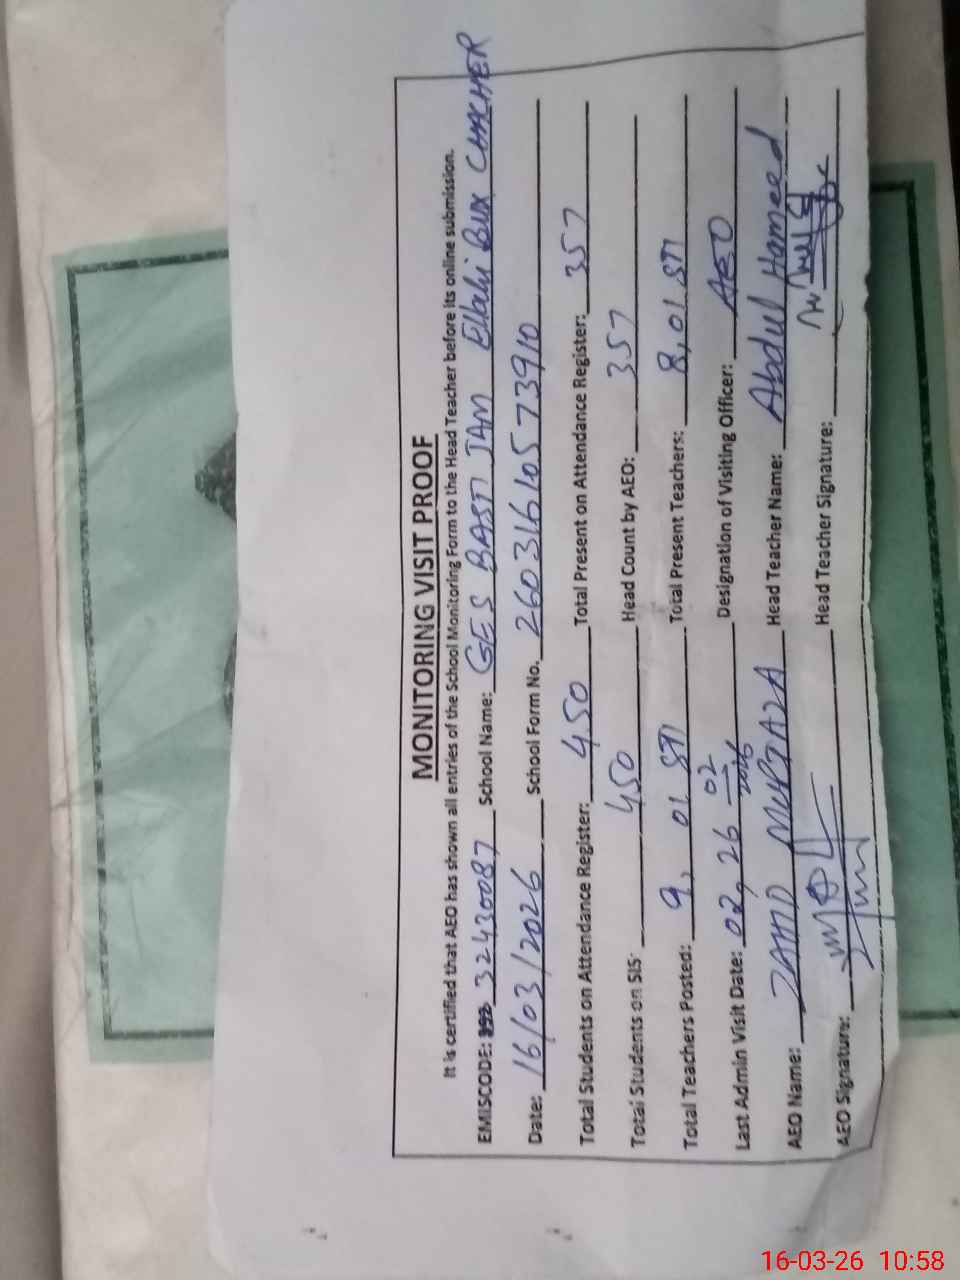 MONITORING VISIT PROOF
It is certified that AEO has shown all entries of the School Monitoring Form to the Head Teacher before its online submission.
EMISCODE: 32430087 School Name: GES BASTI JAM Ellahi Bux CHACHER
Date: 16/03/2026 School Form No. 26031610573910
Total Students on Attendance Register: 450 Total Present on Attendance Register: 357
Total Students on SIS: 450 Head Count by AEO: 357
Total Teachers Posted: 9, 01 STI Total Present Teachers: 8, 01 STI
Last Admin Visit Date: 02, 26 02 2026 Designation of Visiting Officer: AEO
AEO Name: ZAHID MURTAZA Head Teacher Name: Abdul Hameed
AEO Signature: Head Teacher Signature:
16-03-26 10:58